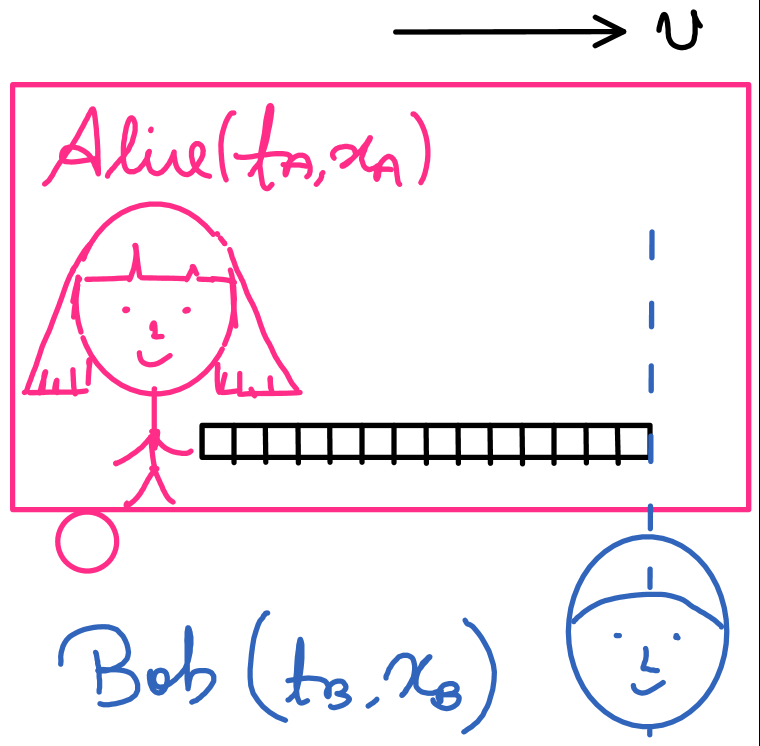 υ
Alice (t_A, x_A)
Bob (t_B, x_B)